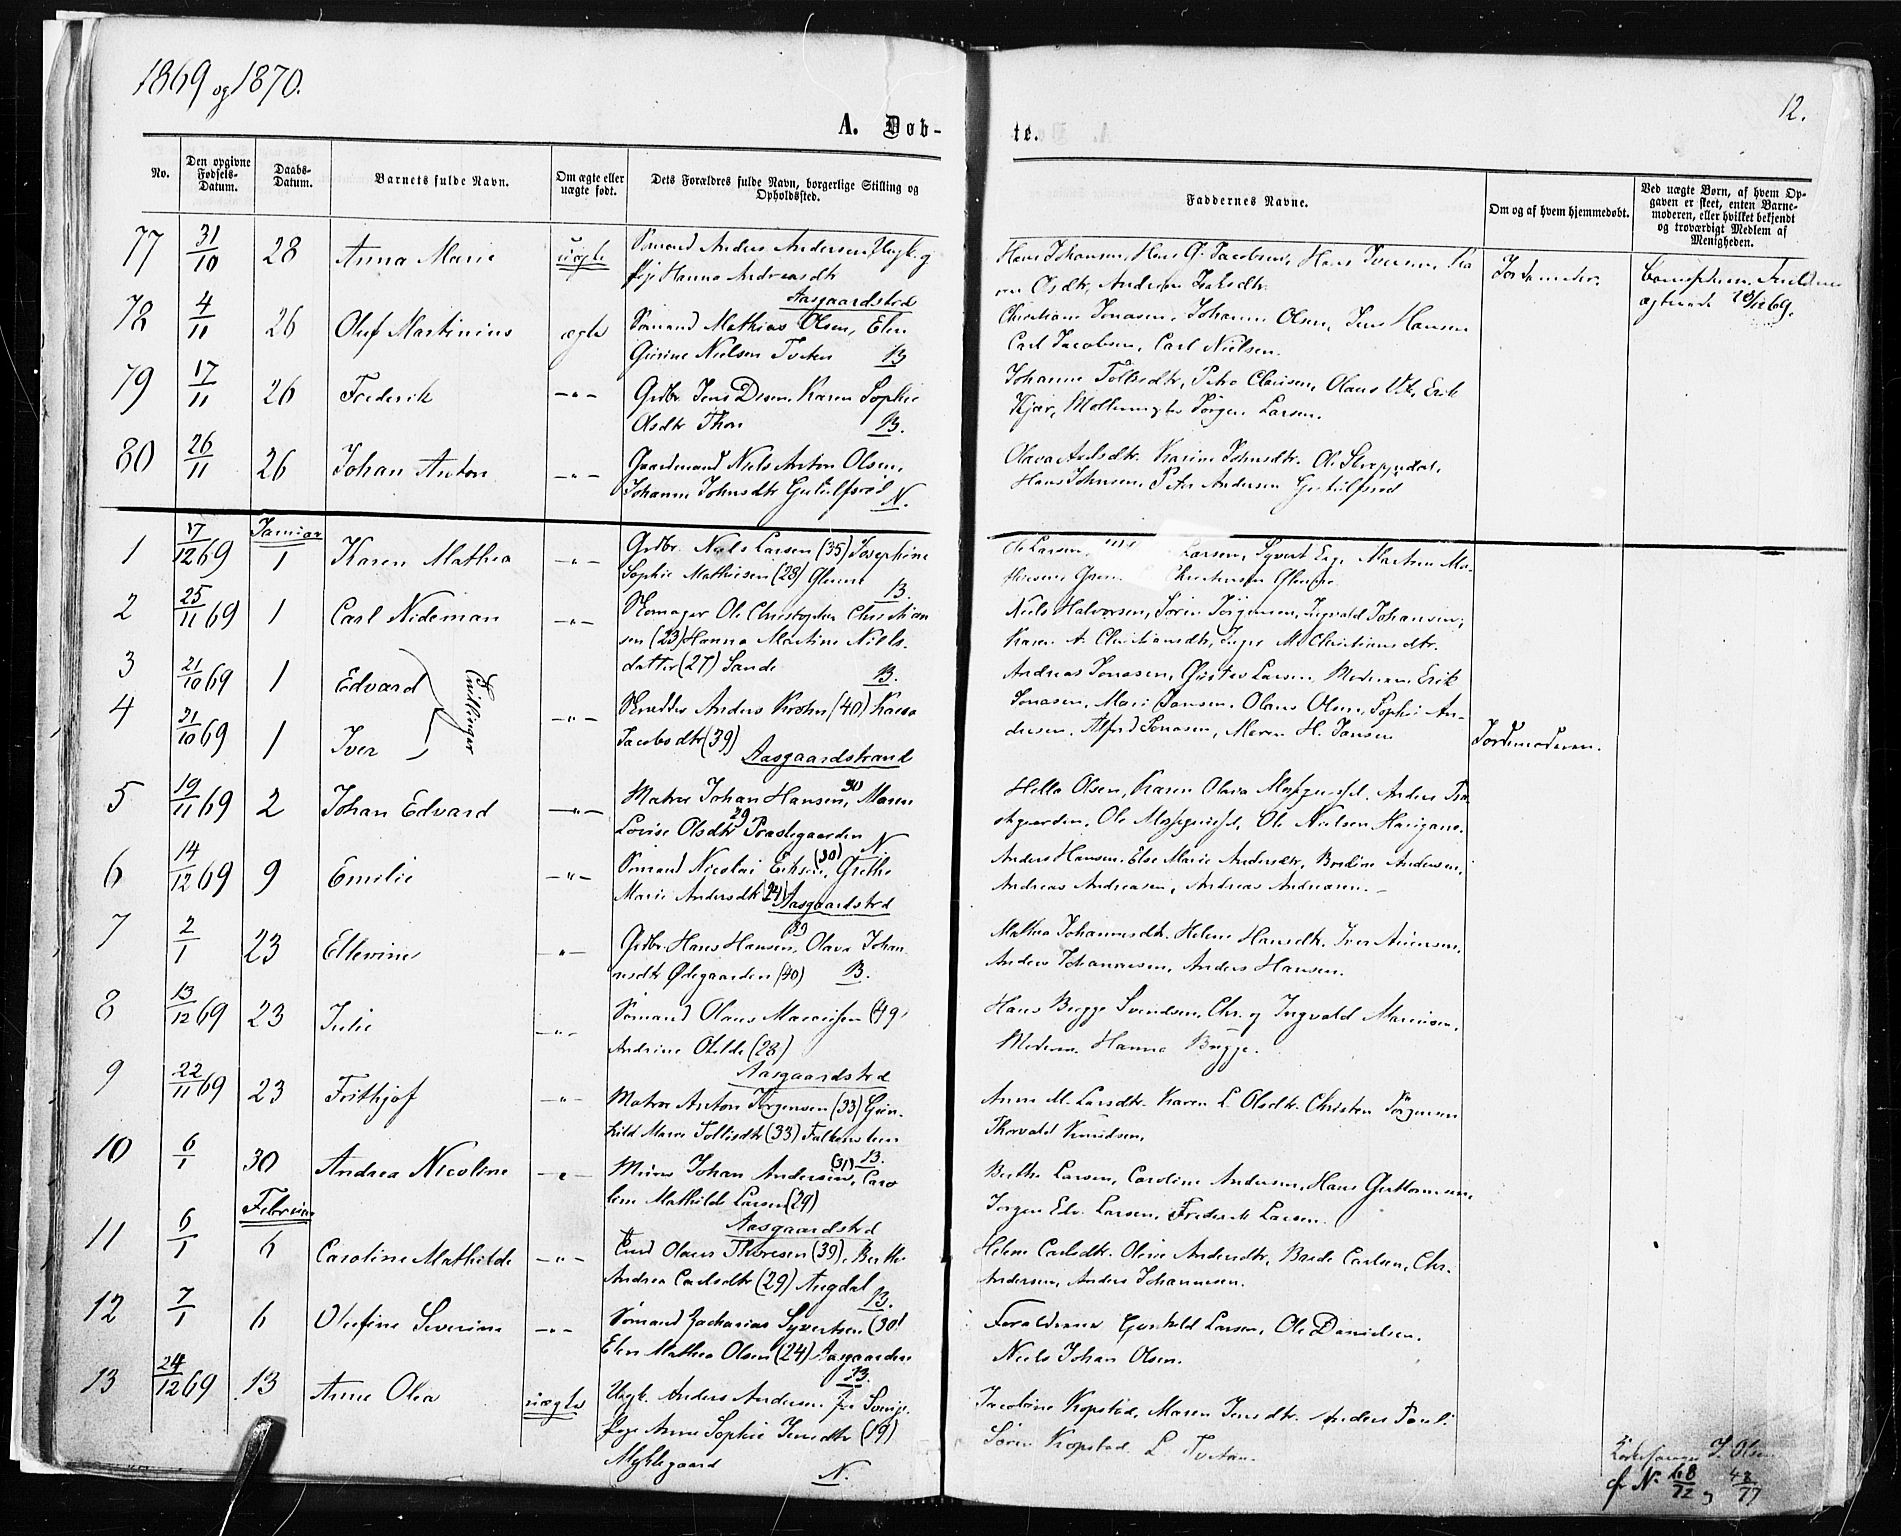 1869 og 1870.
12.
A. Døb-
te.
No.
Den opgivne Fødsels-Datum.
Daabs-Datum.
Barnets fulde Navn.
Om ægte eller uægte født.
Dets Forældres fulde Navn, borgerlige Stilling og Opholdssted.
Faddernes Navne.
Om og af hvem hjemmedøbt.
Ved uægte Børn, af hvem Opgaven er skeet, enten Barnemoderen, eller hvilket bekjendt og troværdigt Medlem af Menigheden.
77 31/10 28 Anna Marie uægte Sømand Anders Andersen Ungk. og
Pige Hanna Andreasdtr
Aasgaardstrd
Hans Johansen, Hans G. Jacobsen, Hans Iversen, Ka
ren Olsdtr, Andreas Isaksdtr.
Jordemoder.
78 4/11 26 Oluf Martinius ægte Sømand Mathias Olsen, Elen
Gurine Nielsen Tveten B
Christiane Jonasen, Johanne Olsen, Jens Hansen
Carl Jacobsen, Carl Nielsen.
79 17/11 26 Frederik -"- Grdbr. Jens Olsen, Karen Sophie
Olsdtr Thon B.
Johanne Tollisdtr, Petra Clausen, Olaus Vik, Erik
Kjær, Jørgen Larsen.
80 26/11 26 Johan Anton -"- Gaardmand Niels Anton Olsen,
Johanne Johnsdtr Gutulfsrød N.
Olava Axelsdtr. Karine Johnsdtr. Ole
Hans Johnsen, Peter Andersen Gutulfsrød
Januar
1 17/12 69 1 Karen Mathea -"- Grdbr. Niels Larsen (35) Josephine
Sophie Mathisen (28) Glenne B.
Ole Larsen, Larsen, Syvert Martin Ma-
2 25/11 69 1 Carl Nideman -"- Skomager Ole Christopher Christian
sen (23) Hanna Martine Niels-
datter (27) Sande B.
Niels Halvorsen, Søren Jørgensen, Ingvald Johansen,
Karen A. Christiansdtr, Inger M. Christiansdtr.
3 21/10 69 1 Edvard
4 21/10 69 1 Iver
Tvillinger
-"- Skrædder Anders Krohn (40) Karen
Jacobsdtr (39)
Aasgaardstrand
Andreas Jonasen, Gustav Larsen, Moderen, Erik
Jonasen, Marie Jansen. Olaus Olsen, Sophie An-
dersen, Alfred Jonasen, Maren H. Jansen
Jordemoderen.
5 19/11 69 2 Johan Edvard -"- Matros Johan Hansen, 30 Maren
Lovise Olsdtr 29 Præstegaarden N.
Hella Olsen, Karen Olava
Ole Nielsen
6 14/12 69 9 Emilie -"- Sømand Nicolai Eriksen (30), Grethe
Marie Andersdtr (24) Aasgaardstrd
Anders Hansen, Else Marie Andersdtr, Bredine Andersen,
Andreas Andreasen, Andreas Andreasen.
7 2/1 23 Ellevine -"- Grdbr. Hans Hansen, Olava Johan
nesdtr Ødegaarden (40) B.
Mathea Johannesdtr. Helene Hansdtr. Iver
Anders Johannesen, Anders Hansen.
8 13/12 69 23 Julie -"- Sømand Olaus Mariussen (49)
Andrine Otilde (28)
Aasgaardstrd
Hans Bugge Svendsen, Chr. og Ingvald Mariusen,
Moderen, Hanna Bugge.
9 22/11 69 23 Frithjof -"- Matros Anton Jørgensen (33) Gun-
hild Marie Tollisdtr (33) Falkensteen
B.
Anne M. Larsdtr. Karen L. Olsdtr. Christen Jørgensen
Thorvald Knudsen.
10 6/1 30 Andrea Nicoline -"- Murer Johan Andersen (31), Caro
line Mathilde Larsen (29)
Aasgaardstrd
Berthe Larsen, Caroline Andersen, Hans Guttormsen,
Jørgen Edv. Larsen, Frederik Larsen.
Februar
11 6/1 6 Caroline Mathilde -"- Olaus Thoresen (39), Berthe
Andrea Carlsdtr (29) Augdal B.
Helene Carlsdtr. Oline Andersdtr, Brede Carlsen, Chr.
Andersen, Anders Johannesen.
12 7/1 6 Olufine Severine -"- Sømand Zacharias Syvertsen (30)
Elen Mathea Olsen (24) Aasgaarden
B.
Forældrene Gunhild Larsen, Ole Danielsen.
Niels Johan Olsen.
13 24/12 69 13 Anne Olea uægte Ungk. Anders Andersen fra Sverige.
Pige Anne Sophie Jensdtr (19)
Myklegaard N.
Jacobine Kopstad, Maren Jensdtr. Anders
Søren Kopstad. L. Tvetan.
Kirkesanger J. Olsen
f. N. 68/72 og 48/77